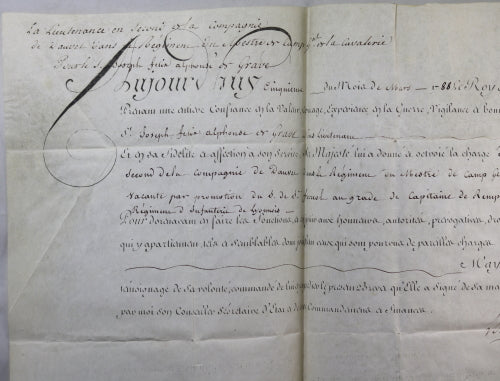 La Lieutenance en Second de la compagnie
de Dauvet dans le Régiment du Mestre de Camp Gal de la Cavalerie
Pour le S. Joseph felix alphonse de Grave
Aujourdhuy Cinquieme du Mois de Mars le Roy
Prenant une entiere Confiance en la Valeur, Courage, Experience en la Guerre, Vigilance & bonne
St. Joseph felix alphonse de Grave Sous Lieutenant
Et en sa Fidelité & affection à son service Sa Majesté lui a donné & octroié la charge
Second de la compagnie de Dauvet dans le Régiment du Mestre de Camp Gé
vacante par promotion du S. de au grade de Capitaine de Remp
Régiment d'Infanterie de Lyonnois
Pour dorénavant en faire les Fonctions, & jouir aux honneurs, autorités, prérogatives, dro
qui y apartiennent tels & semblables dont jouissent ceux qui sont pourvus de pareilles charges
M'ay
témoignage de sa volonté, commandé de lui expédier le présent Brevet qu'Elle a signé de sa ma
par moi son Conseiller Sécrétaire d'Etat & de ses Commandemens & Finances.